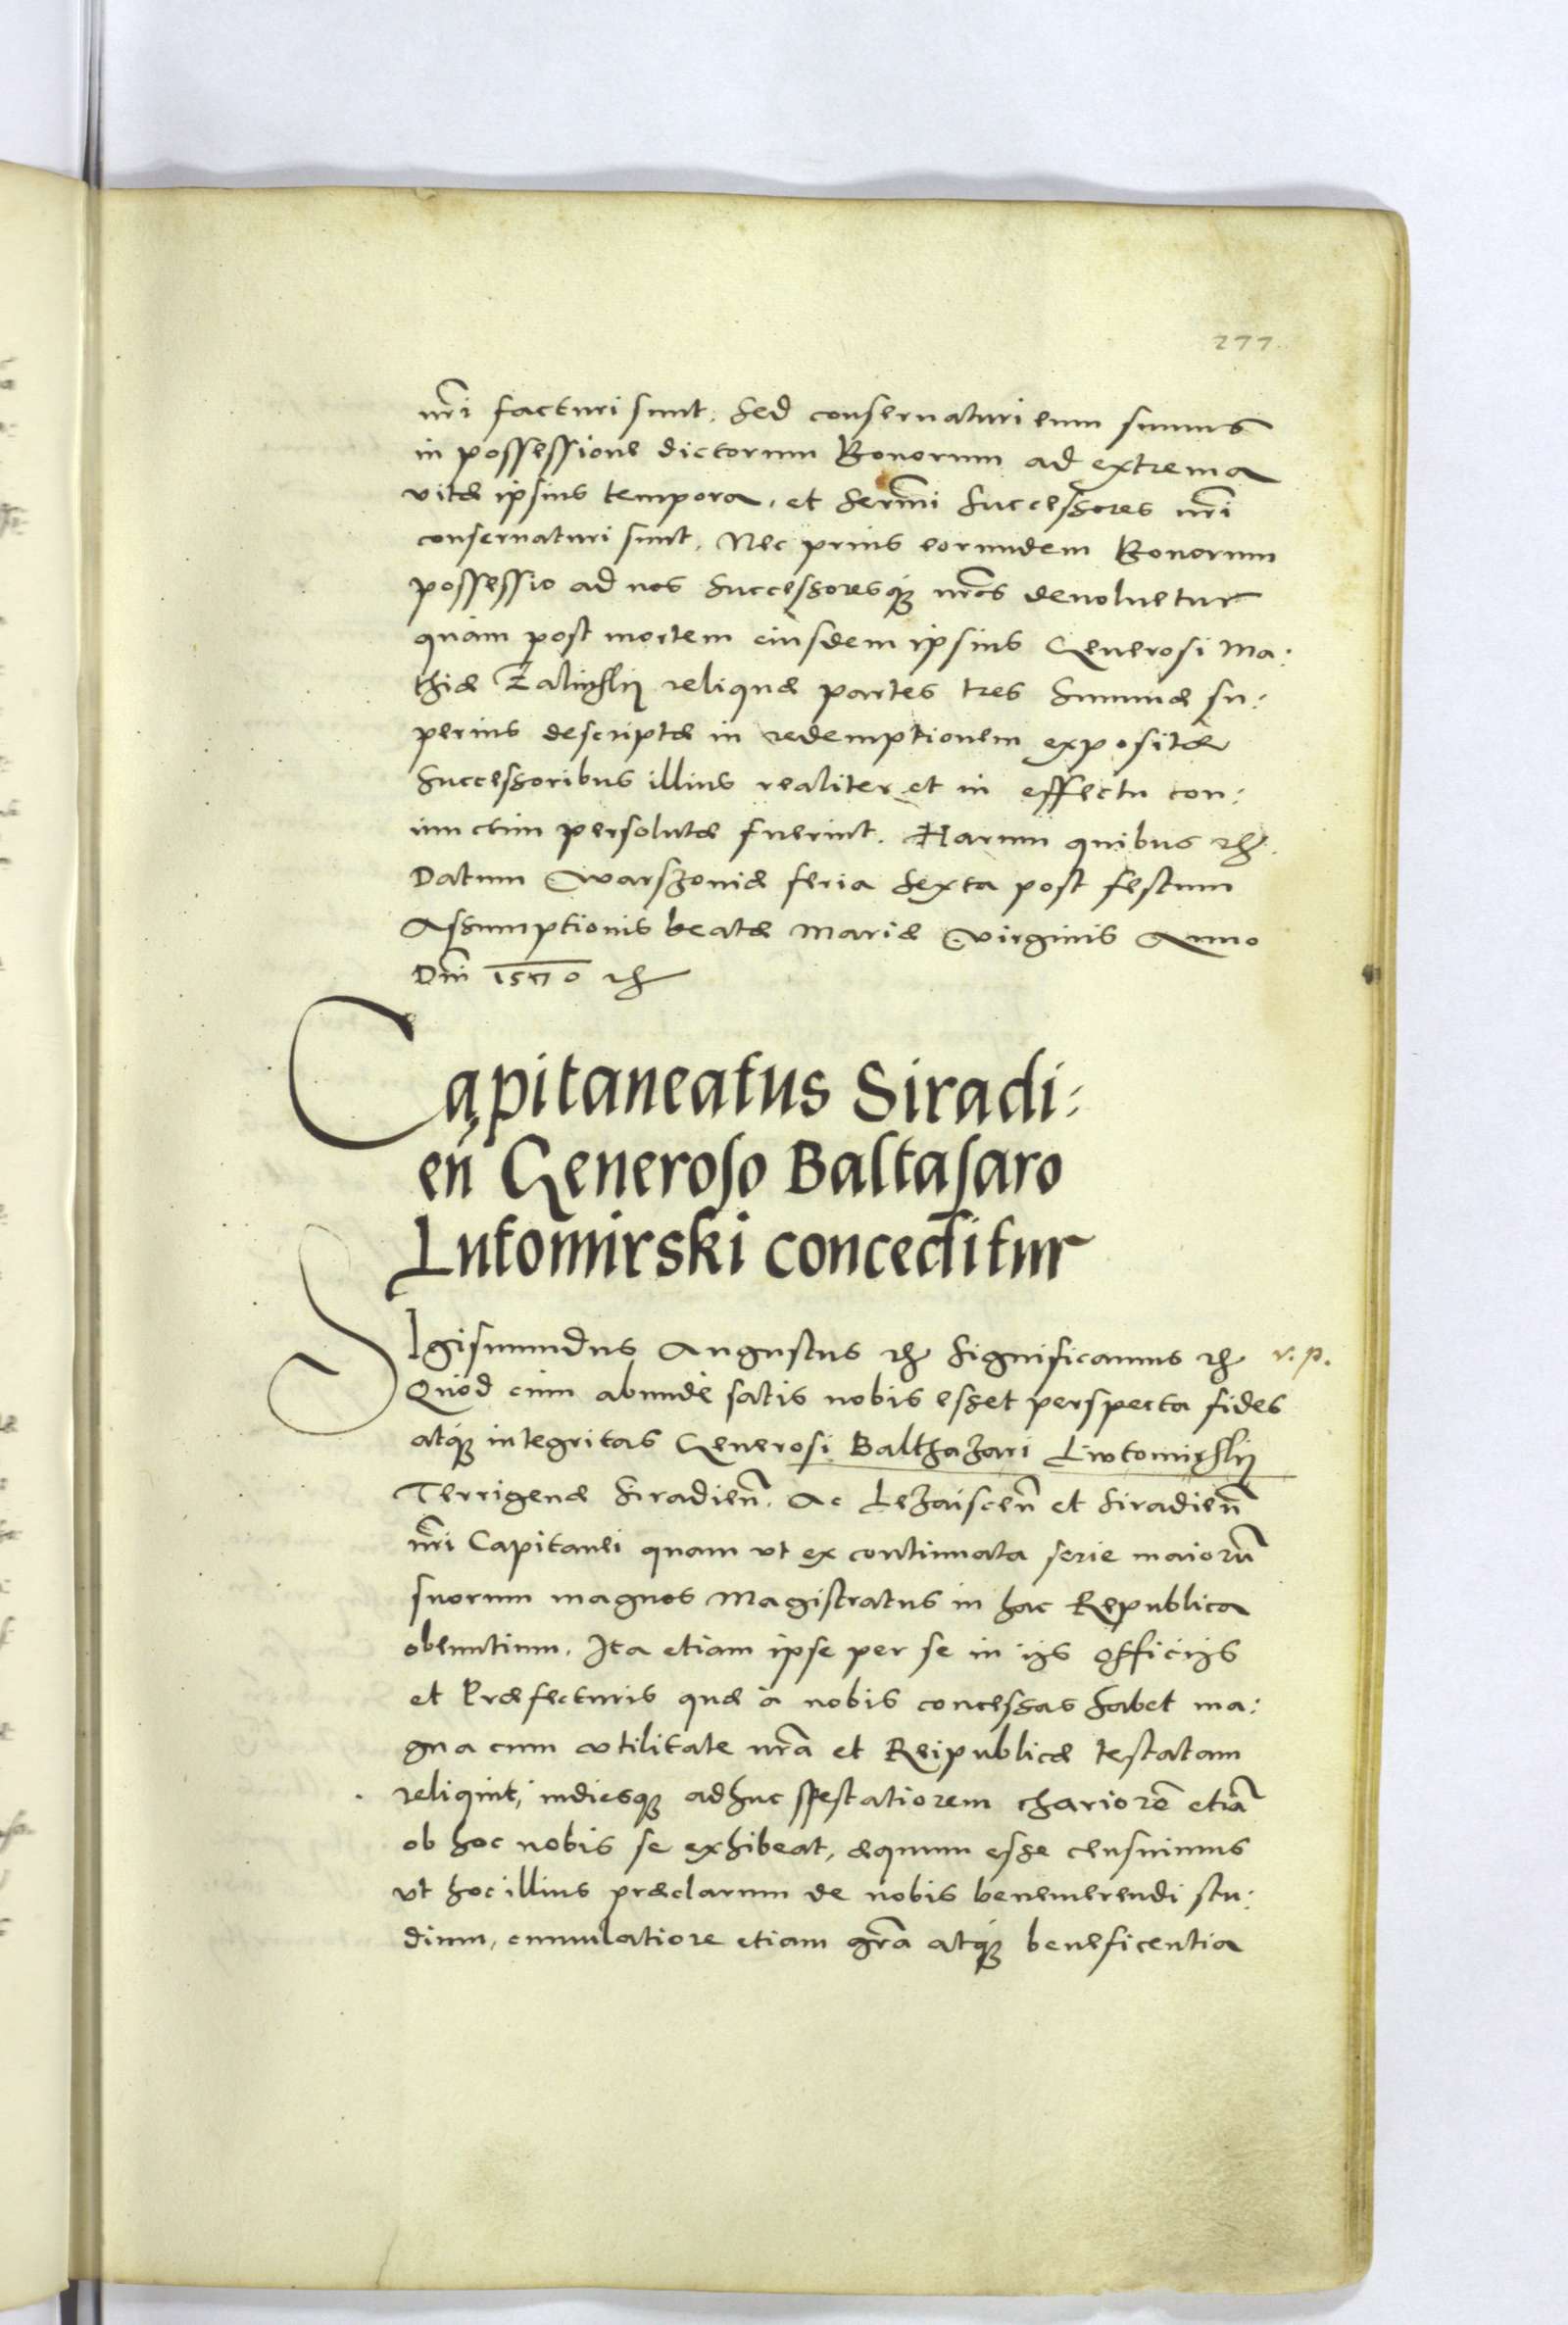 277
nr̃i facturi sunt. Sed conseruaturi eum sumus
in possessione dictorum Bonorum ad extrema
vitæ ipsius tempora, et Sermĩ Successores nr̃i
conseruaturi sunt. Nec prius eorundem Bonorum
possessio ad nos Successoresq́ꝫ nr̃os deuoluetur
quàm post mortem eiusdem ipsius Generosi Ma:
thiæ Zalinskij reliquæ partes tres Summæ su:
perius descriptæ in redemptionem expositæ
Successoribus illius realiter et in effectu con:
iunctim persolutæ fuerint. Harum quibus ⁊c̃.
Datum Warszouiæ feria Sexta post festum
Assumptionis beatæ Mariæ Virginis Anno
Dñi 1570 ⁊c̃
Capitaneatus Siradi:
eñ Generoso Baltasaro
Lutomirski conceditur
SIgismundus Augustus ⁊c̃ Significamus ⁊c̃ v. p.
Quod cùm abundè satis nobis esset perspecta fides
atq́ꝫ integritas Generosi Balthazari Lwtomirskij
Terrigenæ Siradieñ. Ac Leżaisceñ et Siradieñ
nr̃i Capitanei quam vt ex continuata serie maiorũ
suorum magnos Magistratus in hac Republica
obeuntium. Ita etiam ipse per se in ijs Officijs
et Præfecturis quæ à nobis concessas habet ma:
gna cum vtilitate nr̃a et Reipublicæ testatam
reliqit, indiesqꝫ adhuc spectatiorem chariorẽ etiã
ob hoc nobis se exhibeat, æquum esse censuimus
vt hoc illius præclarum de nobis benemerendi stu:
dium, cumulatiore etiam gr̃a atq́ꝫ beneficentia